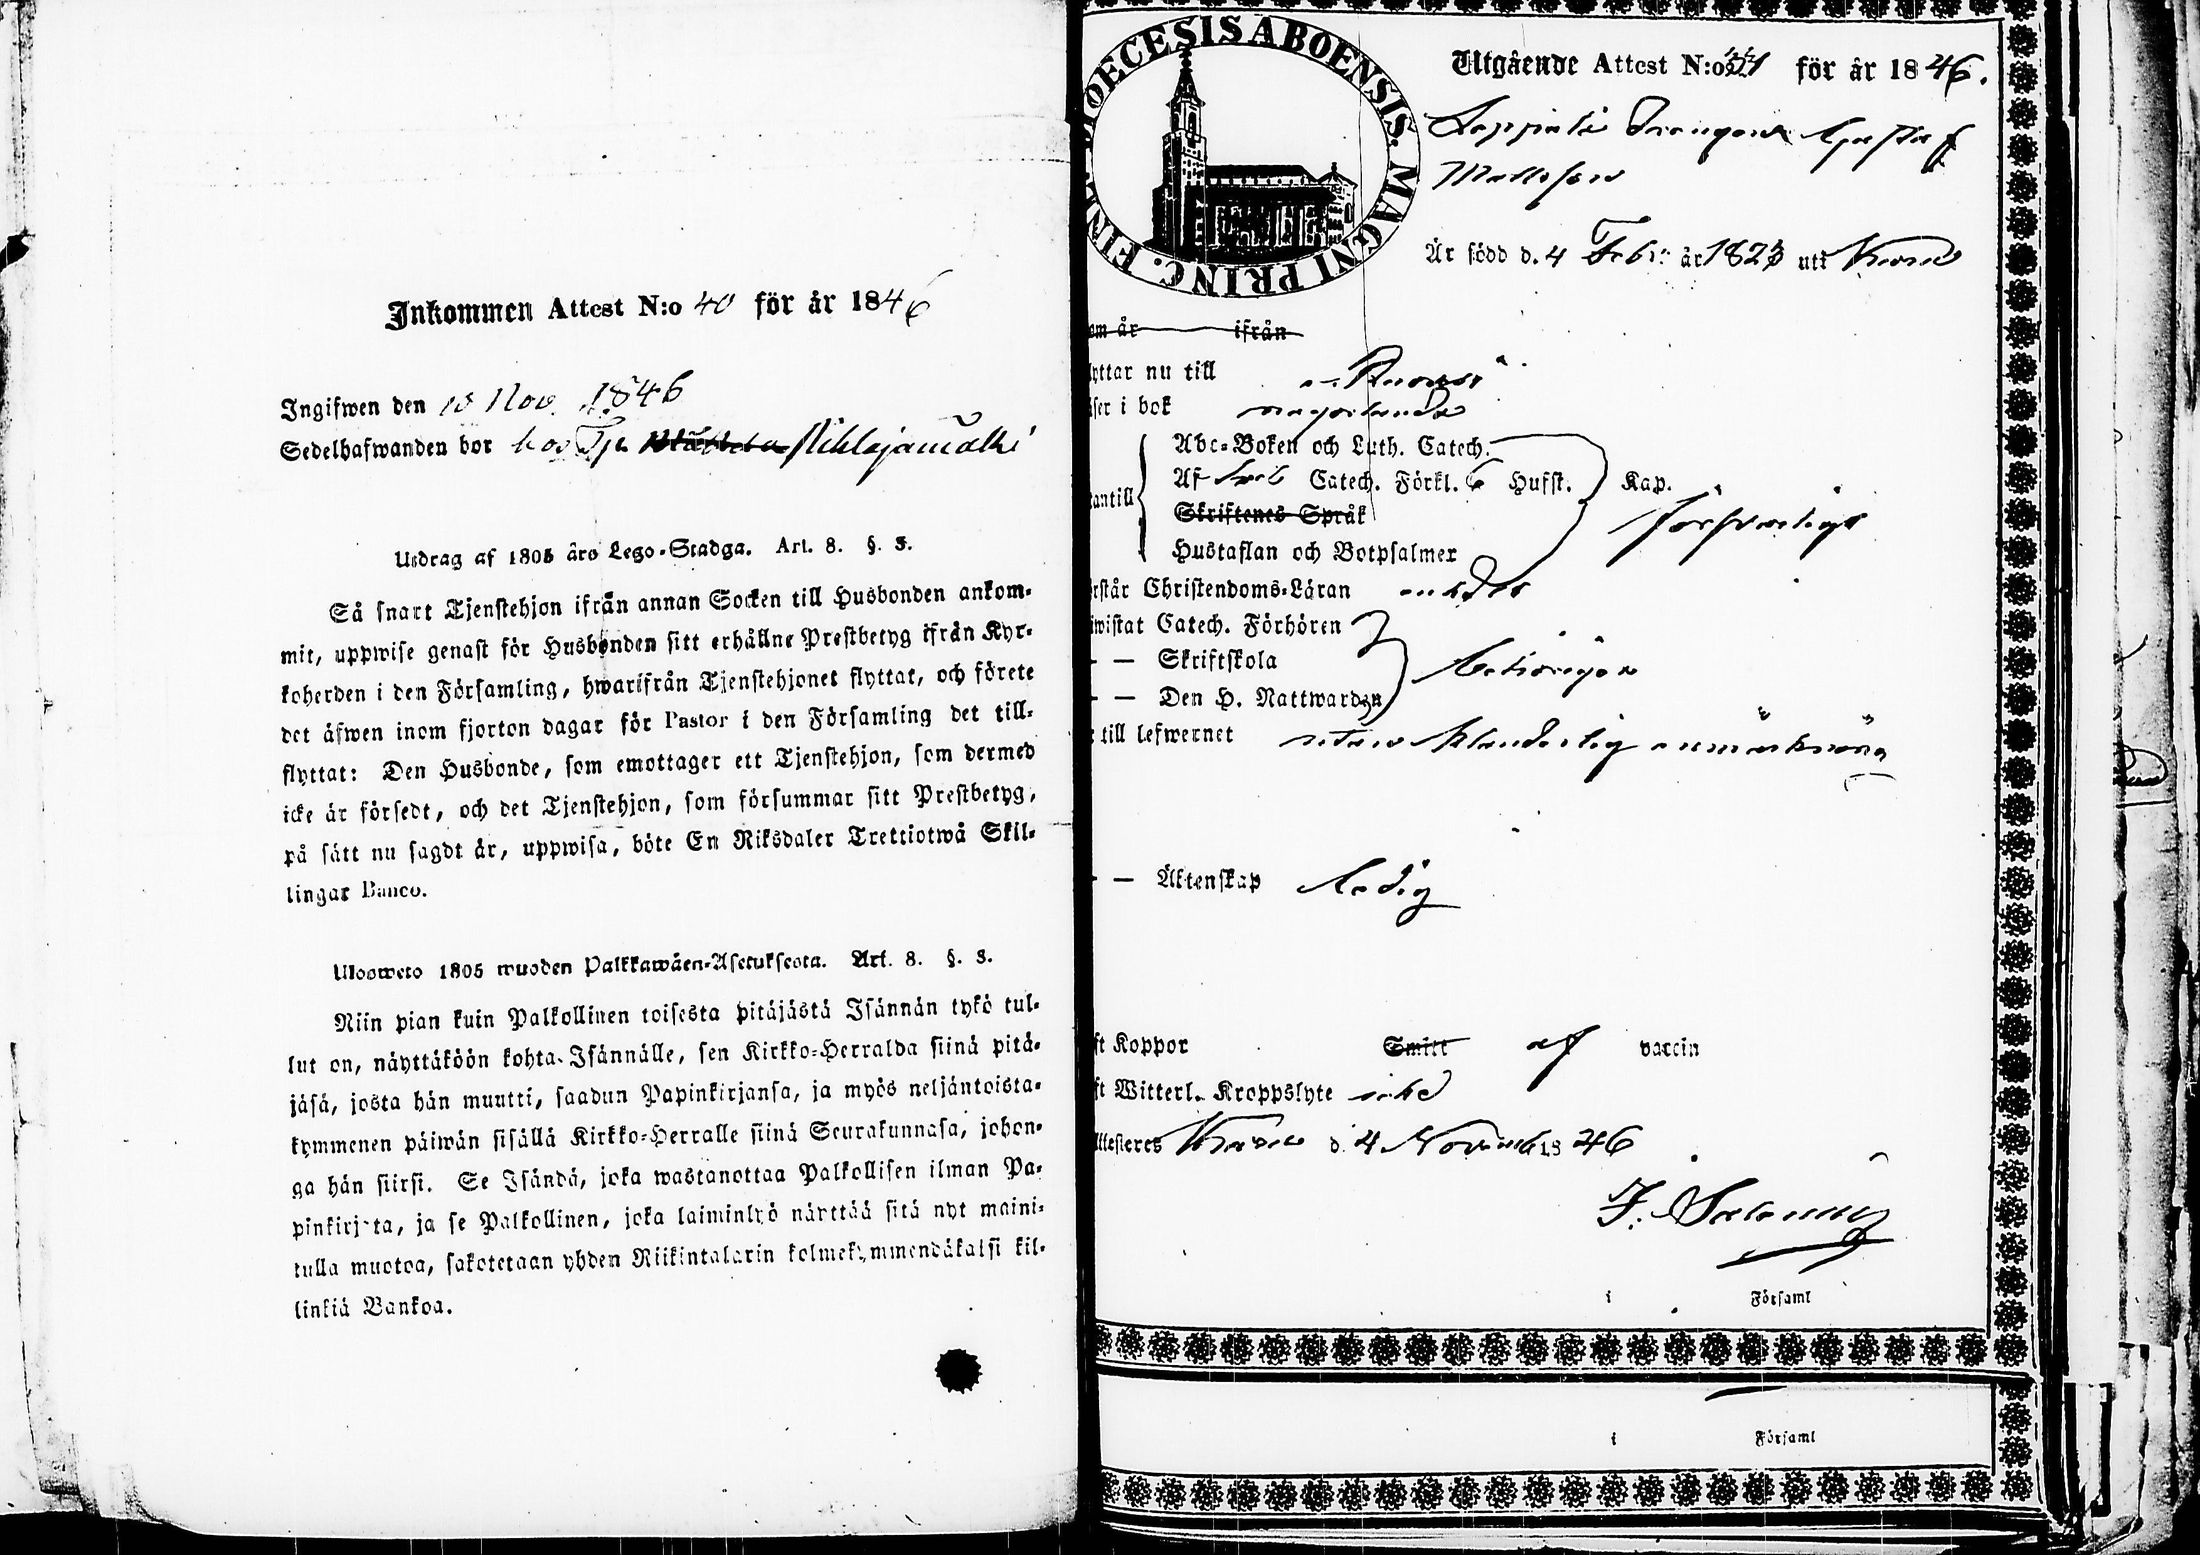 Inkommen Attest N:o 40 för år 1846
Ingifwen den 10 Nov. 1846
Sedelhafwanden bor hos
Utdrag af 1805 års Lego-Stadga. Art. 8. §. 3.
Så snart Tjenstehjon ifrån annan Socken till Husbonden ankom-
mit, uppwise genast för Husbonden sitt erhållne Prestbetyg ifrån Kyr-
koherden i den Församling, hwarifrån Tjenstehjonet flyttat, och förete
det äfwen inom fjorton dagar för Pastor i den Församling det till-
flyttat: Den Husbonde, som emottager ett Tjenstehjon, som dermed
icke är försedt, och det Tjenstehjon, som försummar sitt Prestbetyg,
på sätt nu sagdt är, uppwisa, böte En Riksdaler Trettiotwå Skil-
lingar Banco.
Ulosweto 1805 wuoden Palkkawäen-Asetuksesta. Art. 8. §. 3.
Niin pian kuin Palkollinen toisesta pitäjästä Isännän tykö tul-
lut on, näyttäköön kohta Isännälle, sen Kirkko-Herralda siinä pitä-
jäsä, josta hän muutti, saadun Papinkirjansa, ja myös neljäntoista-
kymmenen päiwän sisällä Kirkko-Herralle siinä Seurakunnasa, johon-
ga hän siirsi. Se Isändä, joka wastanottaa Palkollisen ilman Pa-
pinkirjata, ja se Palkollinen, joka laiminlyö näyttää sitä nyt maini-
tulla muotoa, sakotetaan yhden Riikintalarin kolmekymmendäkaksi kil-
linkiä Bankoa.
DIOECESIS ABOENSIS. MAGNI PRINC. FINL.
Utgående Attest N:o för år 1846.
Drängen Gustaf
Mattsson
Är född d. 4 Febr: år 1823 uti
om år ifrån
lyttar nu till
äser i bok någorlunda
Abc-Boken och Luth. Catech.
Af Sveb Catech. Förkl. 6 Hufst. Kap.
antill
försvarligt
Skriftenes Språk
Hustaflan och Botpsalmer
örstår Christendoms-Läran
iwistat Catech. Förhören
– – Skriftskola
– – Den H. Nattwarden
till lefwernet utan klanderlig anmärkning
– – Äktenskap Ledig
ft Koppor Smitt af vaccin
ft Witterl. Kroppslyte icke
Attesteres d. 4 Novemb 1846
i Församl
i Församl